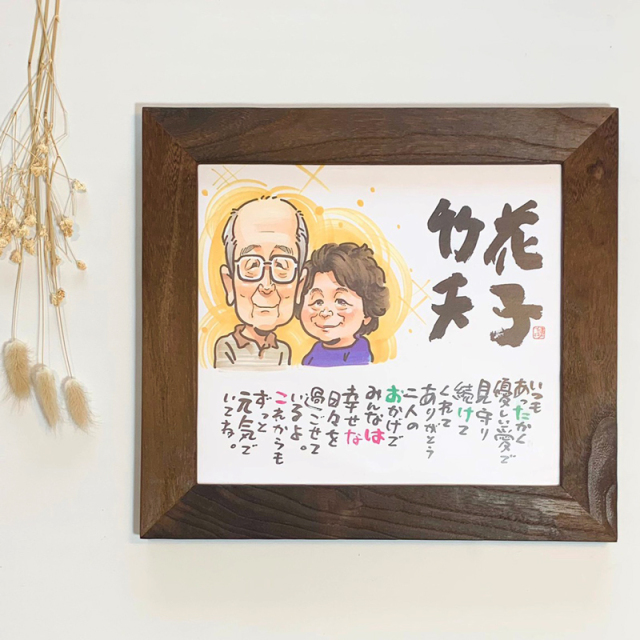 花子
竹夫
いつも
あったかく
優しい愛で
見守り
続けて
くれて
ありがとう
二人の
おかげで
みんなは
幸せな
日々を
過ごせて
いるよ。
これからも
ずっと
元気で
いてね。